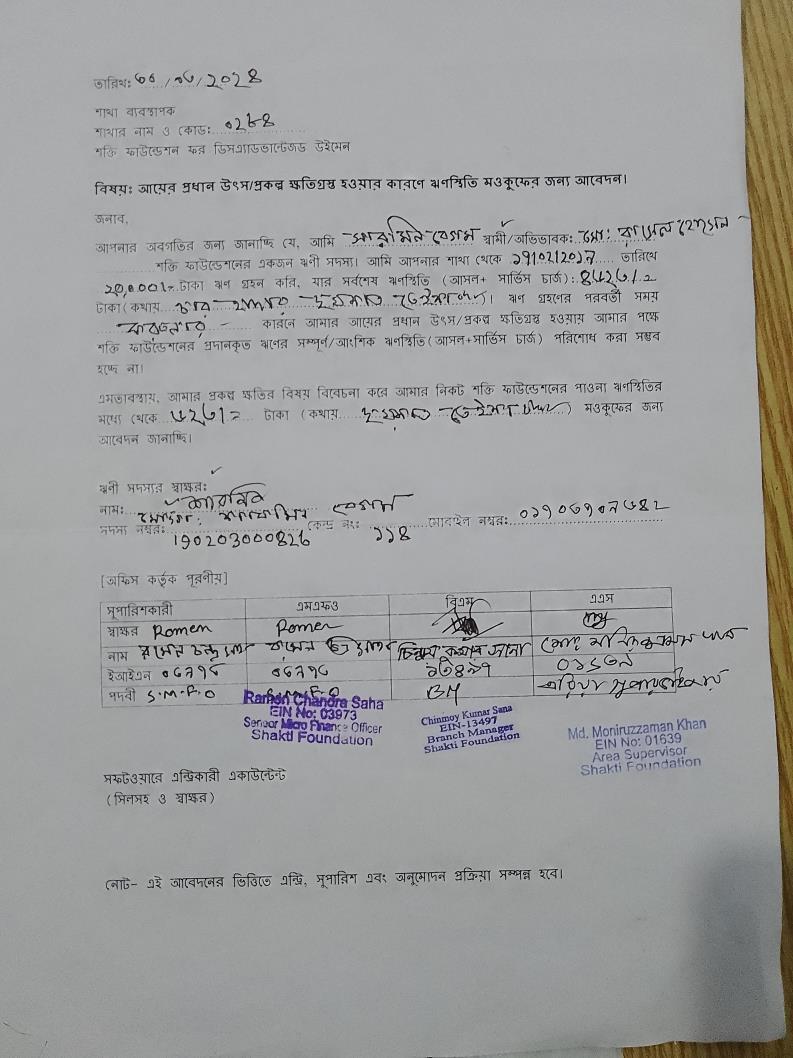 তারিখ: ৩০/০৬/২০২৪
শাখা ব্যবস্থাপক
শাখার নাম ও কোড: ০২৮৪
শক্তি ফাউন্ডেশন ফর ডিসএ্যাডভান্টেজড উইমেন
বিষয়: আয়ের প্রধান উৎস/প্রকল্প ক্ষতিগ্রস্থ হওয়ার কারণে ঋণস্থিতি মওকুফের জন্য আবেদন।
জনাব,
আপনার অবগতির জন্য জানাচ্ছি যে, আমি বেগম স্বামী/অভিভাবক: মো: হোসেন
শক্তি ফাউন্ডেশনের একজন ঋণী সদস্য। আমি আপনার শাখা থেকে তারিখে
২০,০০০/= টাকা ঋণ গ্রহন করি, যার সর্বশেষ ঋণস্থিতি (আসল+ সার্ভিস চার্জ):
টাকা (কথায় চার হাজার)। ঋণ গ্রহণের পরবর্তী সময়
কারনে আমার আয়ের প্রধান উৎস/প্রকল্প ক্ষতিগ্রস্থ হওয়ায় আমার পক্ষে
শক্তি ফাউন্ডেশনের প্রদানকৃত ঋণের সম্পূর্ণ/আংশিক ঋণস্থিতি (আসল+সার্ভিস চার্জ) পরিশোধ করা সম্ভব
হচ্ছে না।
এমতাবস্থায়, আমার প্রকল্প ক্ষতির বিষয় বিবেচনা করে আমার নিকট শক্তি ফাউন্ডেশনের পাওনা ঋণস্থিতির
মধ্যে থেকে টাকা (কথায়) মওকুফের জন্য
আবেদন জানাচ্ছি।
ঋণী সদস্যর স্বাক্ষর:
নাম: বেগম
সদস্য নম্বর: 190203000826 কেন্দ্র নং: ১১৪ মোবাইল নম্বর:
[অফিস কর্তৃক পূরণীয়]
সুপারিশকারী এমএফও বিএম এএস
স্বাক্ষর Romen Romen
নাম রমেন চন্দ্র সাহা রমেন চন্দ্র সাহা চিন্ময় কুমার সানা মোঃ মনিরুজ্জামান খান
ইআইএন ১৩৪৯৭ ০১৬৩৯
পদবী S.M.F.O S.M.F.O BM এরিয়া সুপারভাইজার
Ramen Chandra Saha
EIN No: 03973
Senoor Micro Finance Officer
Shakti Foundation
Chinmoy Kumar Sana
EIN-13497
Branch Manager
Shakti Foundation
Md. Moniruzzaman Khan
EIN No: 01639
Area Supervisor
Shakti Foundation
সফটওয়ারে এন্ট্রিকারী একাউন্টেন্ট
(সিলসহ ও স্বাক্ষর)
নোট- এই আবেদনের ভিত্তিতে এন্ট্রি, সুপারিশ এবং অনুমোদন প্রক্রিয়া সম্পন্ন হবে।